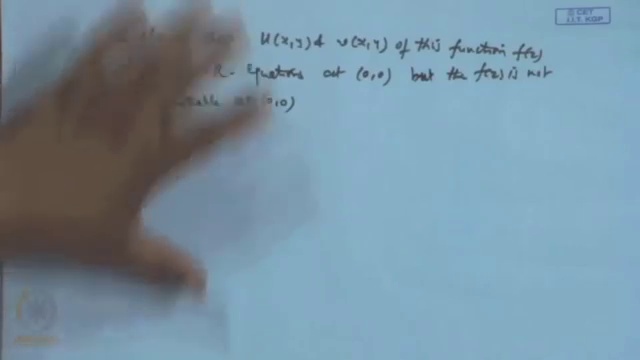 © CET
I.I.T. KGP
U(x,y) & v(x,y) of this function f(z)
R- Equations at (0,0) but the f(z) is not
at (0,0)